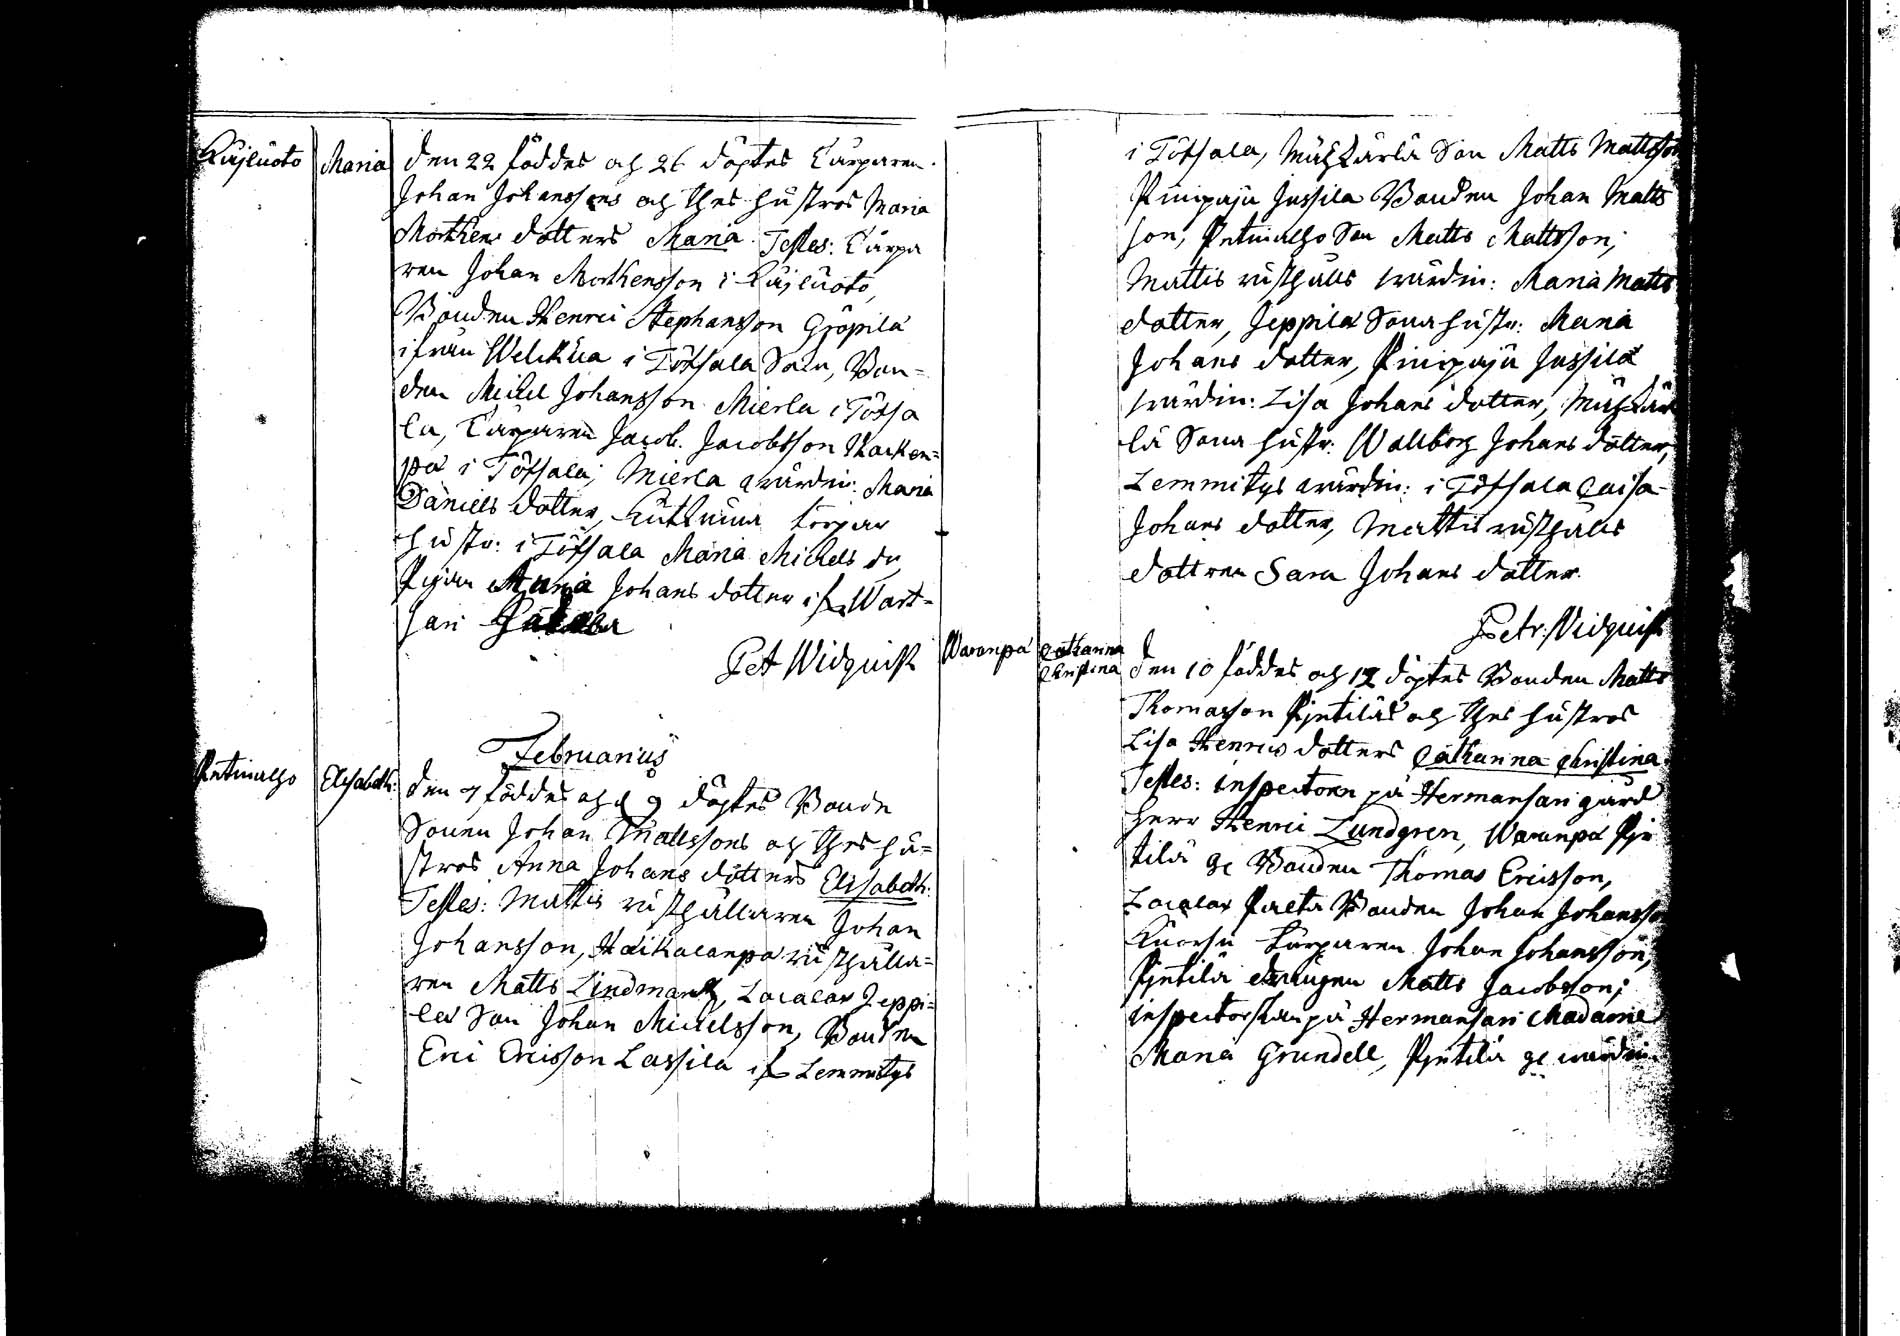 Kujluoto
Maria
den 22 föddes och 26 döptes Torparen
Johan Johanssons och thes hustros Maria
Mårthens dotters Maria. Testes: Torpa
ren Johan Mårthensson i Kujluoto,
Bonden Henric Stephansson Gröpilä
ifrån Welckua i Töfsala Sokn, Bon=
den Michel Johansson Mierla i Töfsa
la, Torparen Jacob Jacobsson
pä i Töfsala; Mierla wärdin: Maria
Daniels dotter, torpar
hustr: i Töfsala Maria Michels dr,
Pigan Johans dotter ifr Wart=
sari
Pet Widquist
Februarius
Pntmalho
Elisabeth:
den 7 föddes och d 9 döptes Bonde
Sonen Johan Mattssons och thes hu=
stros Anna Johans dotters Elisabeth:
Testes: Mattis rusthållaren Johan
Johansson, Haikalanpä rusthålla=
ren Matts Lindmark, Localax Jeppi=
lä Son Johan Michelsson, Bonden
Eric Ericsson Lassila ifr Lemmitys
i Töfsala, Son Matts Mattsson
Pinipaju Jussila Bonden Johan Matts
son, Pntmalho Son Matts Mattsson;
Mattis rusthålls wärdin: Maria Matts
dotter, Jeppilä Sona hustr: Maria
Johans dotter, Pinipaju Jussila
wärdin: Lisa Johans dotter,
lä Sona hustr: Wallborg Johans dotter,
Lemmitys wärdin: i Töfsala Caisa
Johans dotter, Mattis rusthålls
dottren Sara Johans dotter.
Petr: Widquist
Waranpä
Catharina
Christina
den 10 föddes och 12 döptes Bonden Matts
Thomasson Pjntiläs och thes hustros
Lisa Henrics dotters Catharina Christina.
Testes: inspectoren på Hermansari gård
Herr Henric Lundgren, Waranpä Pjn
tilä ge Bonden Thomas Ericsson,
Localax Palta Bonden Johan Johansson
Kuorsu torparen Johan Johansson,
Pjntilä drängen Matts Jacobsson;
inspectorskan på Hermansari Madame
Maria Grundell, Pjntilä ge wärdin: